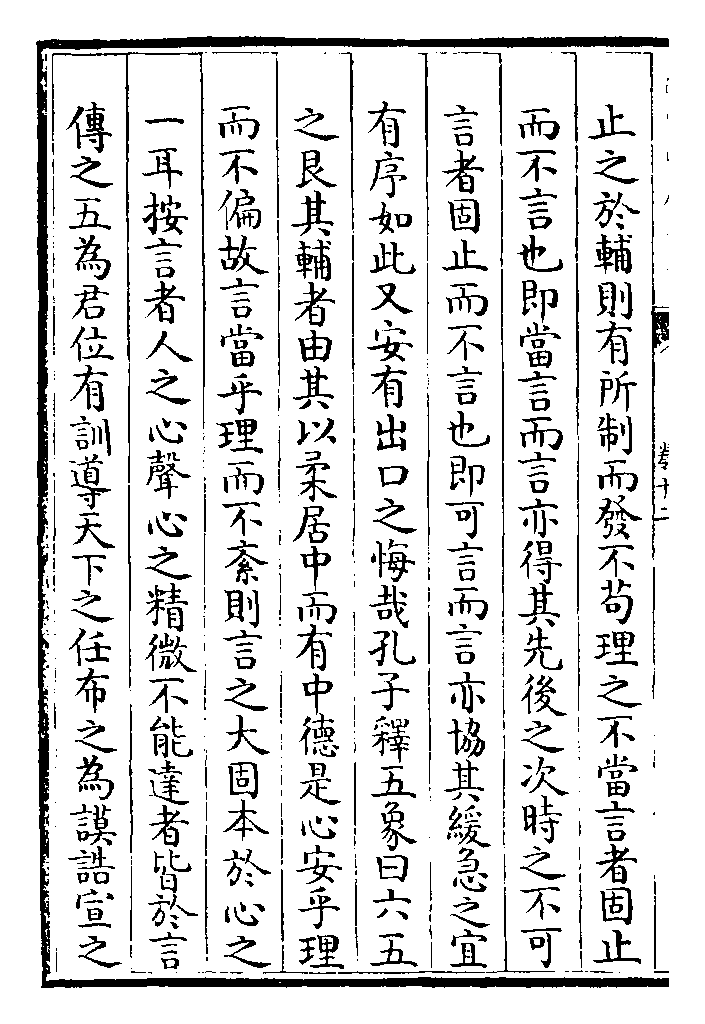 止之於輔則有所制而發不茍理之不當言者固止
而不言也即當言而言亦得其先後之次時之不可
言者固止而不言也即可言而言亦協其緩急之宜
有序如此又安有出口之悔哉孔子釋五象曰六五
之艮其輔者由其以柔居中而有中德是心安乎理
而不偏故言當乎理而不紊則言之大固本於心之
一耳按言者人之心聲心之精微不能達者皆於言
傳之五為君位有訓導天下之任布之為謨誥宣之
卷十二